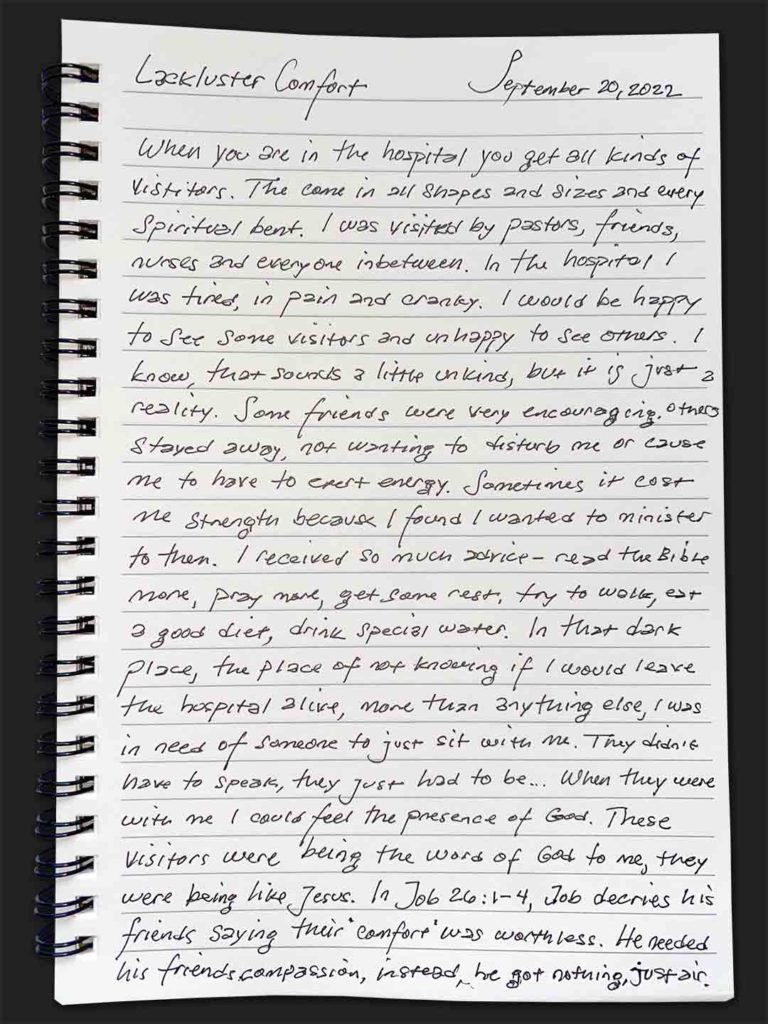 Lackluster Comfort September 20, 2022
When you are in the hospital you get all kinds of
visititors. The come in all shapes and sizes and every
spiritual bent. I was visited by pastors, friends,
nurses and everyone inbetween. In the hospital I
was tired, in pain and cranky. I would be happy
to see some visitors and unhappy to see others. I
know, that sounds a little unkind, but it is just a
reality. Some friends were very encouraging. Others
stayed away, not wanting to disturb me or cause
me to have to exert energy. Sometimes it cost
me strength because I found I wanted to minister
to them. I received so much advice - read the Bible
more, pray more, get some rest, try to walk, eat
a good diet, drink special water. In that dark
place, the place of not knowing if I would leave
the hospital alive, more than anything else, I was
in need of someone to just sit with me. They didn't
have to speak, they just had to be... When they were
with me I could feel the presence of God. These
visitors were being the word of God to me, they
were being like Jesus. In Job 26:1-4, Job decries his
friends saying their "comfort" was worthless. He needed
his friends compassion, instead, he got nothing, just air.